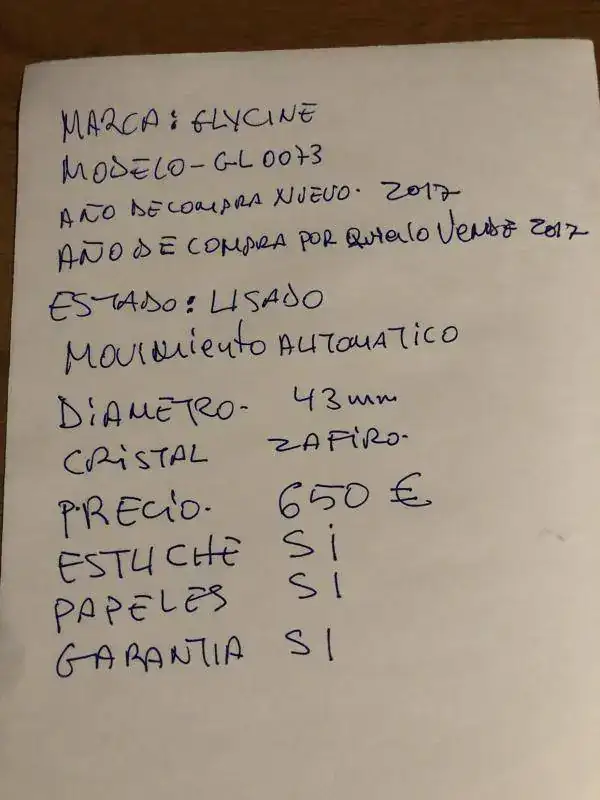 MARCA: GLYCINE
MODELO-GL0073
AÑO DE COMPRA NUEVO. 2017
AÑO DE COMPRA POR QUIEN LO VENDE 2017
ESTADO: USADO
MOVIMIENTO AUTOMATICO
DIAMETRO- 43mm
CRISTAL ZAFIRO-
PRECIO. 650 €
ESTUCHE SI
PAPELES SI
GARANTIA SI